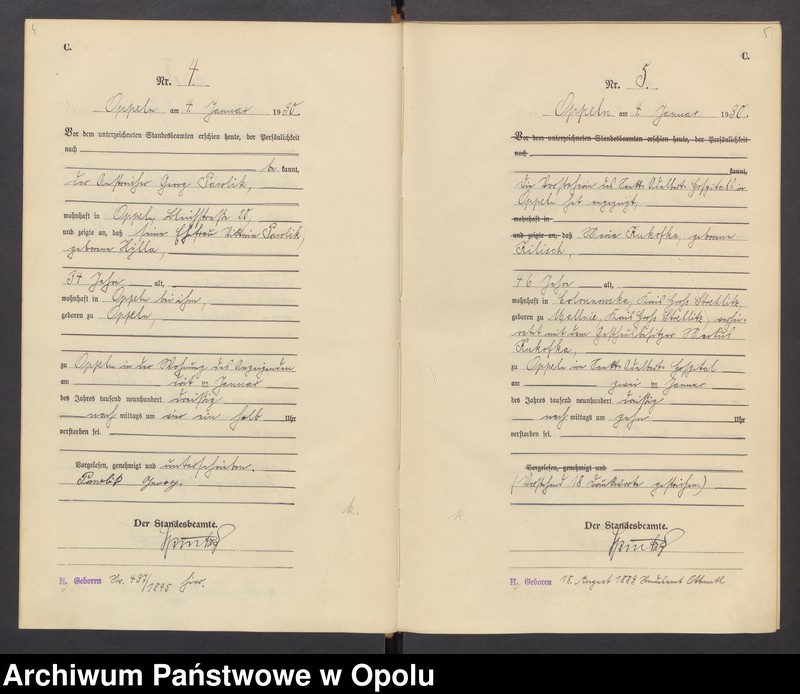 4
C.
Nr. 4.
Oppeln am 4. Januar 1930.
Vor dem unterzeichneten Standesbeamten erschien heute, der Persönlichkeit
nach
be kannt,
der Anstreicher Georg Pawlik,
wohnhaft in Oppeln, Bleichstraße 20,
und zeigte an, daß seine Ehefrau Viktoria Pawlik,
geborene Hylla,
34 Jahre alt,
wohnhaft in Oppeln bei ihm,
geboren zu Oppeln,
zu Oppeln in der Wohnung des Anzeigenden
am drit en Januar
des Jahres tausend neunhundert dreißig
nach mittags um vier ein halb Uhr
verstorben sei.
Vorgelesen, genehmigt und unterschrieben.
Pawlik Georg.
Der Standesbeamte.
H. Geboren Nr. 497/1895 hier.
5.
C.
Nr. 5.
Oppeln am 4. Januar 1930.
Vor dem unterzeichneten Standesbeamten erschien heute, der Persönlichkeit
nach
kannt,
Die Vorsteherin des Sankt Adalbert-Hospitals in
Oppeln hat angezeigt,
wohnhaft in
und zeigte an, daß Maria Kukofka, geborene
Kilisch,
46 Jahre alt,
wohnhaft in Colonnowska, Kreis Groß Strehlitz,
geboren zu Mallnie, Kreis Groß Strehlitz, verhei-
ratet mit dem Markus
Kukofka,
zu Oppeln im Sankt Adalbert-Hospital
am zwei en Januar
des Jahres tausend neunhundert dreißig
nach mittags um zehn Uhr
verstorben sei.
Vorgelesen, genehmigt und
(Vorstehend 18 Druckworte gestrichen.)
Der Standesbeamte.
H. Geboren 18. August 1883 Standesamt Ottmuth
Archiwum Państwowe w Opolu